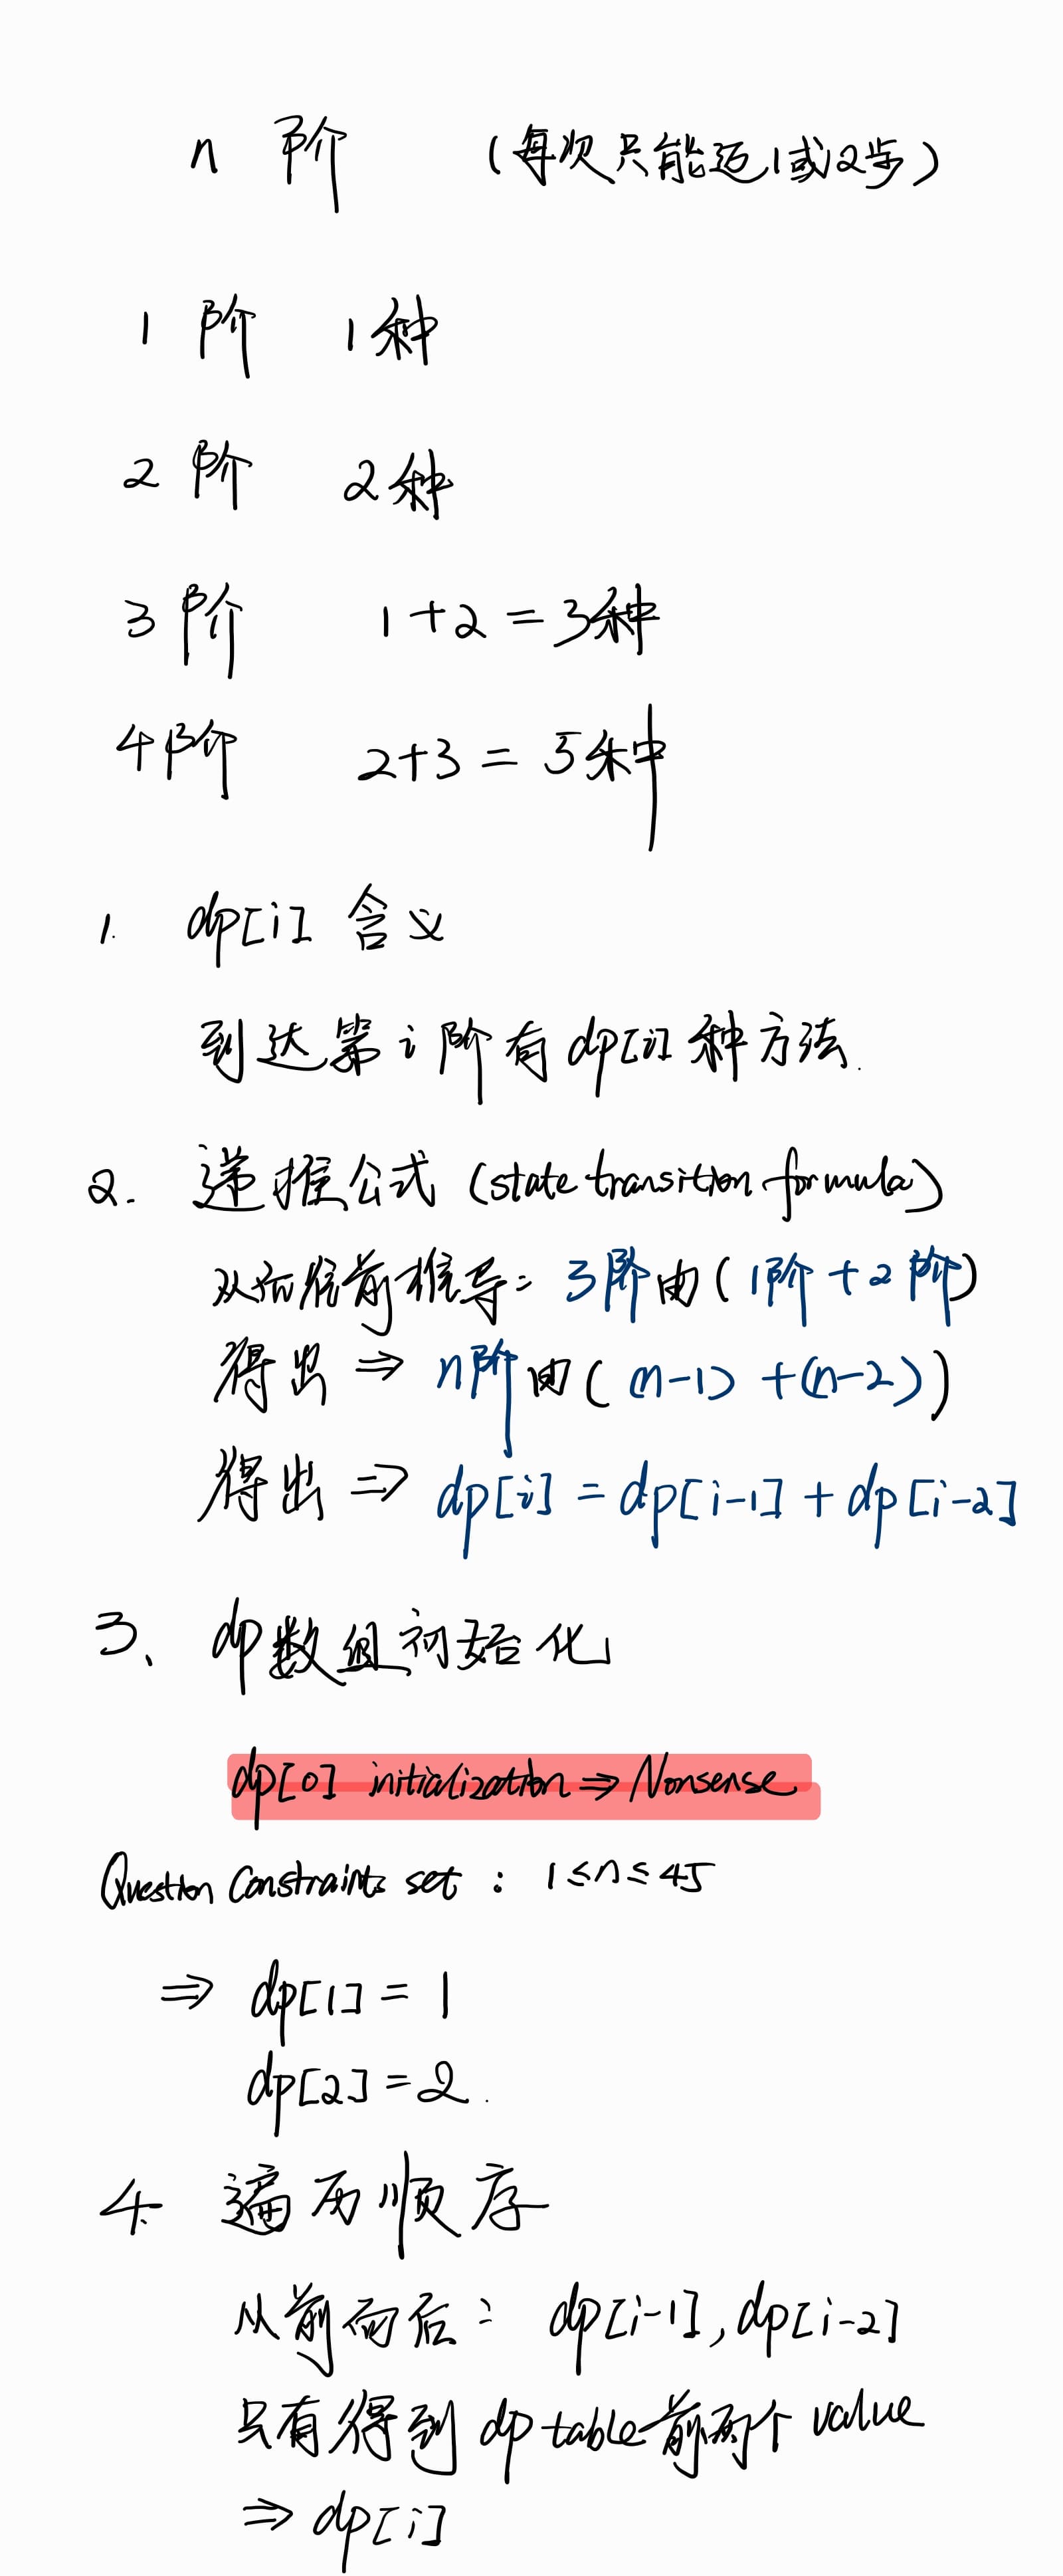 n 阶 (每次只能迈1或2步)
1 阶 1种
2 阶 2种
3 阶 1+2 = 3种
4阶 2+3 = 5种
1. dp[i] 含义
到达第 i 阶有 dp[i] 种方法.
2. 递推公式 (state transition formula)
从后往前推导: 3阶由(1阶+2阶)
得出 ⇒ n阶由((n-1)+(n-2))
得出 ⇒ dp[i] = dp[i-1] + dp[i-2]
3、dp数组初始化
dp[0] initialization ⇒ Nonsense
Question Constraints set : 1≤n≤45
⇒ dp[1] = 1
dp[2] = 2.
4. 遍历顺序
从前向后: dp[i-1], dp[i-2]
只有得到 dp table前两个 value
⇒ dp[i]